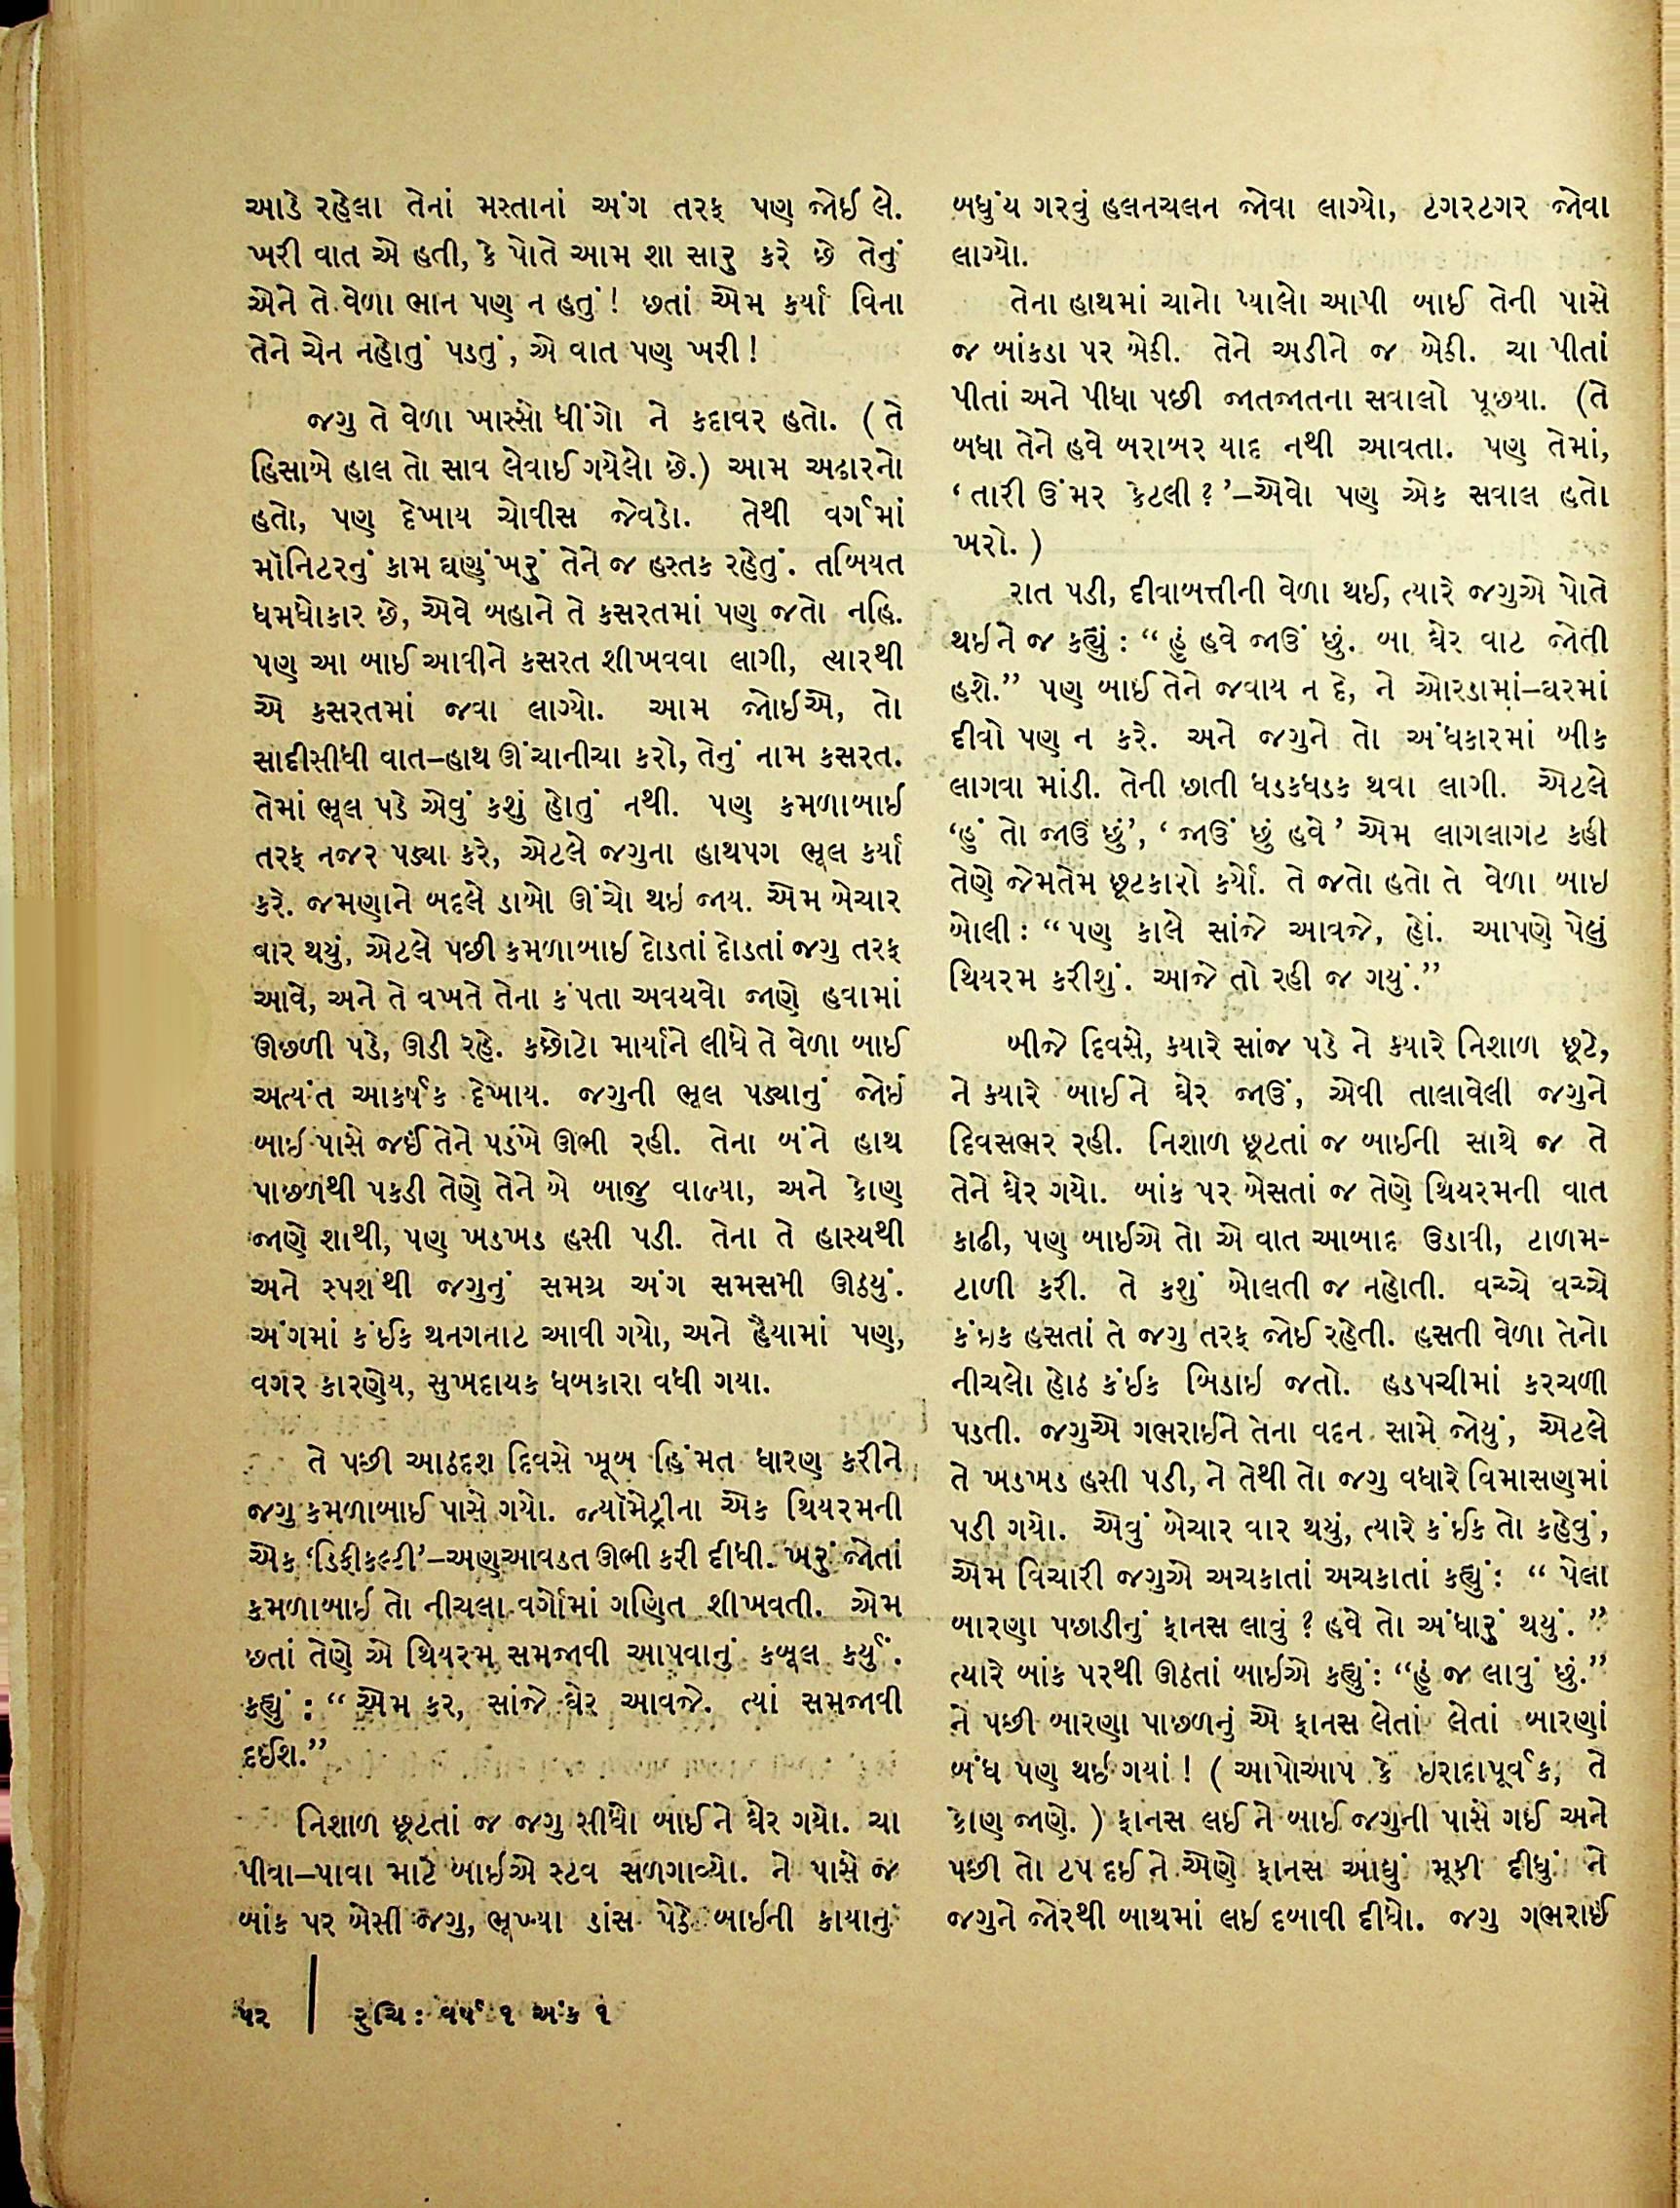 આડે રહેલા તેનાં મસ્તાનાં અંગ તરફ પણ જોઈ લે.
ખરી વાત એ હતી, કે પોતે આમ શા સારુ કરે છે તેનું
એને તે વેળા ભાન પણ ન હતું! છતાં એમ કર્યા વિના
તેને ચેન નહોતું પડતું, એ વાત પણ ખરી!
જગુ તે વેળા ખાસ્સો ધીંગો ને કદાવર હતો. (તે
હિસાબે હાલ તો સાવ લેવાઈ ગયેલો છે.) આમ અઢારનો
હતો, પણ દેખાય ચોવીસ જેવડો. તેથી વર્ગમાં
મૉનિટરનું કામ ઘણુંખરું તેને જ હસ્તક રહેતું. તબિયત
ધમધોકાર છે, એવે બહાને તે કસરતમાં પણ જતો નહિ.
પણ આ બાઈ આવીને કસરત શીખવવા લાગી, ત્યારથી
એ કસરતમાં જવા લાગ્યો. આમ જોઈએ, તો
સાદીસીધી વાત–હાથ ઊંચાનીચા કરો, તેનું નામ કસરત.
તેમાં ભૂલ પડે એવું કશું હોતું નથી. પણ કમળાબાઈ
તરફ નજર પડ્યા કરે, એટલે જગુના હાથપગ ભૂલ કર્યા
કરે. જમણાને બદલે ડાબો ઊંચો થઇ જાય. એમ બેચાર
વાર થયું, એટલે પછી કમળાબાઈ દોડતાં દોડતાં જગુ તરફ
આવે, અને તે વખતે તેના કંપતા અવયવો જાણે હવામાં
ઊછળી પડે, ઊડી રહે. કછોટો માર્યાને લીધે તે વેળા બાઈ
અત્યંત આકર્ષક દેખાય. જગુની ભૂલ પડ્યાનું જોઇ
બાઇ પાસે જઈ તેને પડખે ઊભી રહી. તેના બંને હાથ
પાછળથી પકડી તેણે તેને બે બાજુ વાળ્યા, અને કોણ
જાણે શાથી, પણ ખડખડ હસી પડી. તેના તે હાસ્યથી
અને સ્પર્શથી જગુનું સમગ્ર અંગ સમસમી ઊઠયું.
અંગમાં કંઈક થનગનાટ આવી ગયો, અને હૈયામાં પણ,
વગર કારણેય, સુખદાયક ધબકારા વધી ગયા.
તે પછી આઠદશ દિવસે ખૂબ હિંમત ધારણ કરીને
જગુ કમળાબાઈ પાસે ગયો. જ્યૉમેટ્રીના એક થિયરમની
એક ‘ડિફીકલ્ટી’–અણઆવડત ઊભી કરી દીધી. ખરું જોતાં
કમળાબાઈ તો નીચલા વર્ગોમાં ગણિત શીખવતી. એમ
છતાં તેણે એ થિયરમ સમજાવી આપવાનું કબૂલ કર્યું.
કહ્યું : “ એમ કર, સાંજે ઘેર આવજે. ત્યાં સમજાવી
દઈશ.”
નિશાળ છૂટતાં જ જગુ સીધો બાઈને ઘેર ગયો. ચા
પીવા–પાવા માટે બાઇએ સ્ટવ સળગાવ્યો. ને પાસે જ
બાંક પર બેસી જગુ, ભૂખ્યા ડાંસ પેઠે બાઇની કાયાનું
બધુંય ગરવું હલનચલન જોવા લાગ્યો, ટગરટગર જોવા
લાગ્યો.
તેના હાથમાં ચાનો પ્યાલો આપી બાઈ તેની પાસે
જ બાંકડા પર બેઠી. તેને અડીને જ બેઠી. ચા પીતાં
પીતાં અને પીધા પછી જાતજાતના સવાલો પૂછયા. (તે
બધા તેને હવે બરાબર યાદ નથી આવતા. પણ તેમાં,
‘ તારી ઉંમર કેટલી ? ’–એવો પણ એક સવાલ હતો
ખરો. )
રાત પડી, દીવાબત્તીની વેળા થઈ, ત્યારે જગુએ પોતે
થઈને જ કહ્યું : “ હું હવે જાઉં છું. બા ઘેર વાટ જોતી
હશે.” પણ બાઈ તેને જવાય ન દે, ને ઓરડામાં–ઘરમાં
દીવો પણ ન કરે. અને જગુને તો અંધકારમાં બીક
લાગવા માંડી. તેની છાતી ધડકધડક થવા લાગી. એટલે
‘હું તો જાઉં છું’, ‘ જાઉં છું હવે ’ એમ લાગલાગટ કહી
તેણે જેમતેમ છૂટકારો કર્યો. તે જતો હતો તે વેળા બાઇ
બોલી : “ પણ કાલે સાંજે આવજે, હોં. આપણે પેલું
થિયરમ કરીશું. આજે તો રહી જ ગયું.”
બીજે દિવસે, કયારે સાંજ પડે ને કયારે નિશાળ છૂટે,
ને ક્યારે બાઈને ઘેર જાઉં, એવી તાલાવેલી જગુને
દિવસભર રહી. નિશાળ છૂટતાં જ બાઈની સાથે જ તે
તેને ઘેર ગયો. બાંક પર બેસતાં જ તેણે થિયરમની વાત
કાઢી, પણ બાઈએ તો એ વાત આબાદ ઉડાવી, ટાળમ-
ટાળી કરી. તે કશું બોલતી જ નહોતી. વચ્ચે વચ્ચે
કંઇક હસતાં તે જગુ તરફ જોઈ રહેતી. હસતી વેળા તેનો
નીચલો હોઠ કંઈક બિડાઇ જતો. હડપચીમાં કરચળી
પડતી. જગુએ ગભરાઈને તેના વદન સામે જોયું, એટલે
તે ખડખડ હસી પડી, ને તેથી તો જગુ વધારે વિમાસણમાં
પડી ગયો. એવું બેચાર વાર થયું, ત્યારે કંઈક તો કહેવું,
એમ વિચારી જગુએ અચકાતાં અચકાતાં કહ્યું : “ પેલા
બારણા પછાડીનું ફાનસ લાવું ? હવે તો અંધારું થયું. ”
ત્યારે બાંક પરથી ઊઠતાં બાઈએ કહ્યું : “હું જ લાવું છું.”
ને પછી બારણા પાછળનું એ ફાનસ લેતાં લેતાં બારણાં
બંધ પણ થઇ ગયાં ! ( આપોઆપ કે ઇરાદાપૂર્વક, તે
કોણ જાણે. ) ફાનસ લઈને બાઈ જગુની પાસે ગઈ અને
પછી તો ટપ દઈને એણે ફાનસ આઘું મૂકી દીધું ને
જગુને જોરથી બાથમાં લઇ દબાવી દીધો. જગુ ગભરાઈ
૫૨ | રુચિ : વર્ષ ૧ અંક ૧